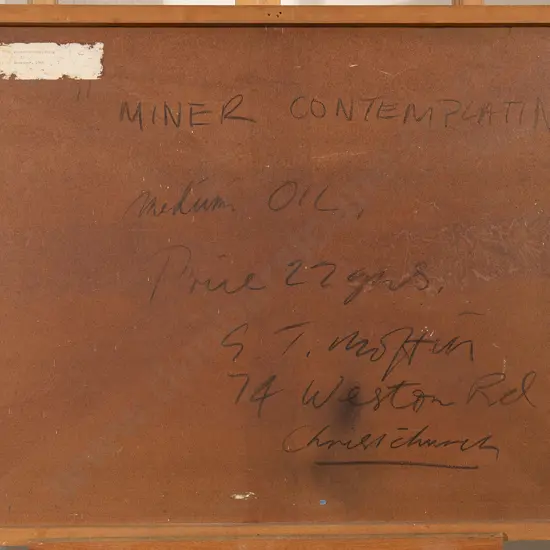 " MINER CONTEMPLATIN
Medium OIL.
Price 22 gns.
G. T. Moffitt
74 Weston Rd
Christchurch